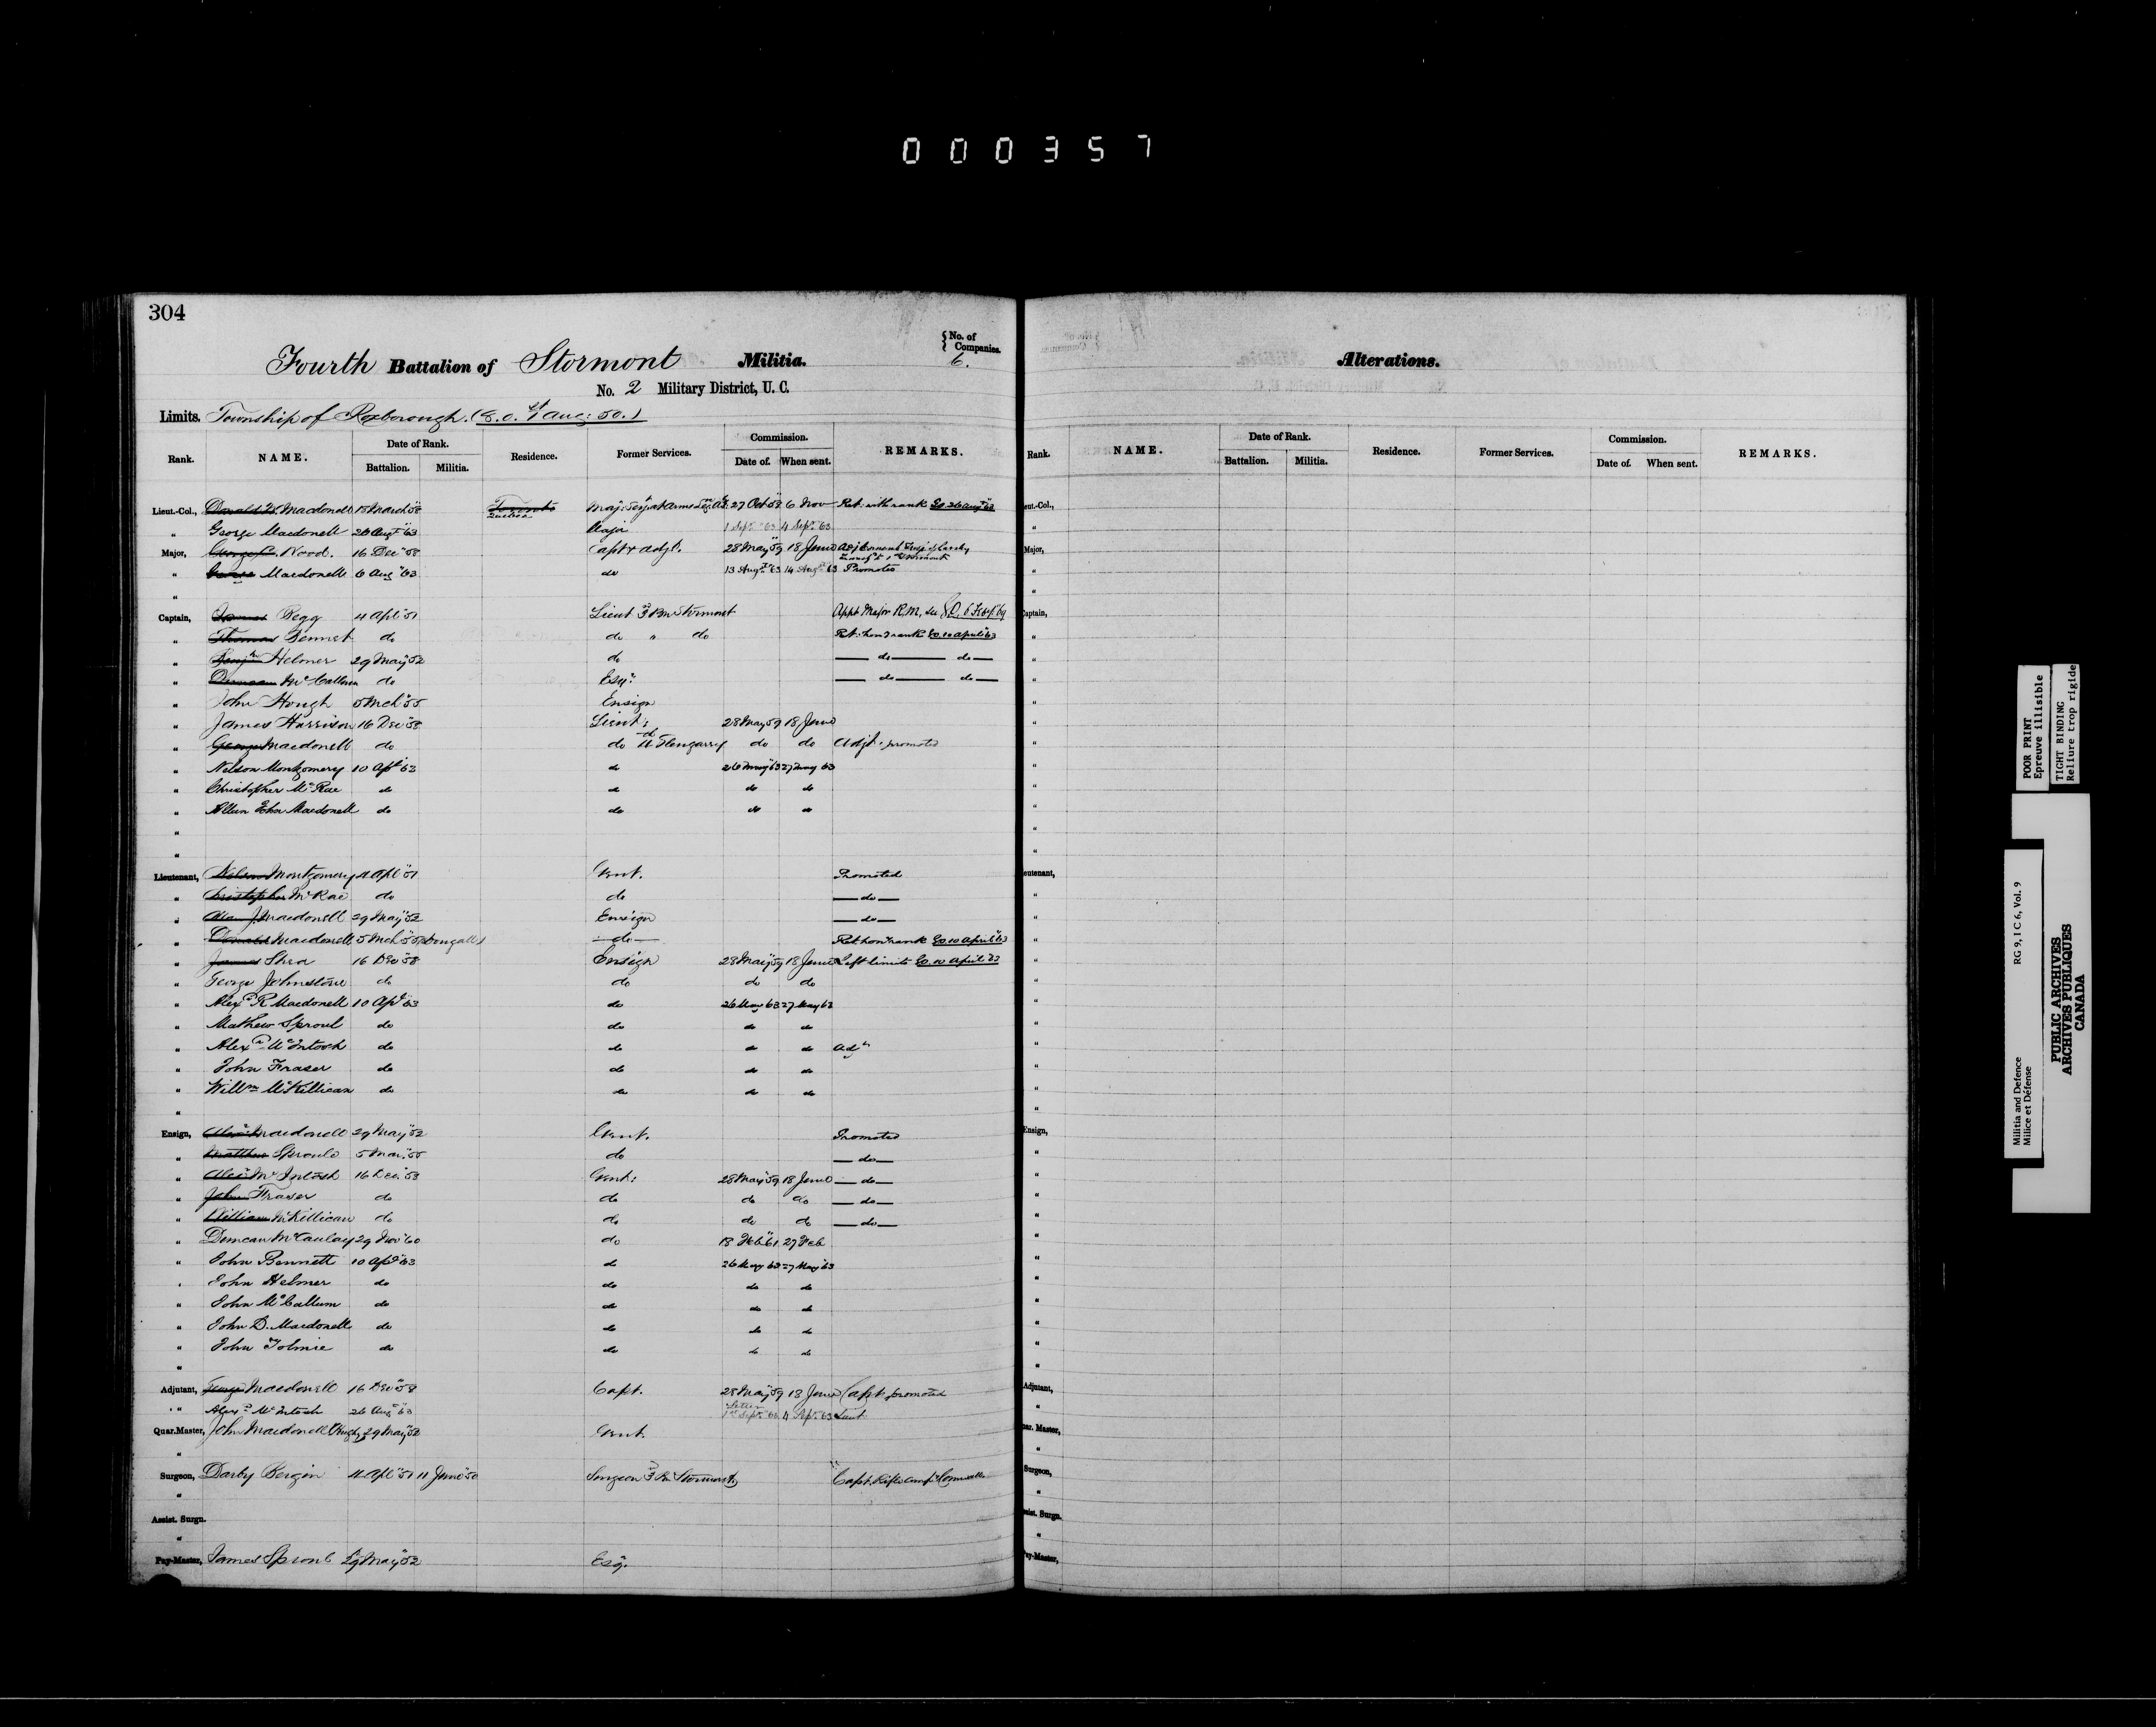 000357
304
Fourth Battalion of Stormont Militia. { No. of Companies. 6.
No. 2 Military District, U. C.
Limits. Township of Roxborough. (G.O. 1st Aug: 50.)
Rank. NAME. Date of Rank. Battalion. Militia. Residence. Former Services. Commission. Date of. When sent. REMARKS.
Lieut.-Col., Macdonell 18 March 58 Toronto Quebec 27 Oct 58 6 Nov Ret. with rank GO 26 Aug 63
" George Macdonell 26 Augt 63 Major 1 Sept 63 4 Sept 63
Major, George C. Wood. 16 Dec 58 Capt & Adjt. 28 May 59 18 June
" George Macdonell 6 Aug 63 do 13 Augt 63 14 Augt 63 Promoted
"
Captain, James Begg 4 Apl 51 Lieut 3 Bn Stormont Appt Major R.M.
" Thomas Bennet do do " do Ret. hon rank GO 10 April 63
" Benjn Helmer 29 May 52 do — do — do —
" Duncan McCallum do Esqr. — do — do —
" John Hough 5 Mch 55 Ensign
" James Harrison 16 Dec 58 Lieut: 28 May 59 18 June
" George Macdonell do do Glengarry do do Adjt. promoted
" Nelson Montgomery 10 Apl 63 do 26 May 63 27 May 63
" Christopher McRae do do do do
" Allan John Macdonell do do do do
"
"
Lieutenant, Nelson Montgomery 4 Apl 51 Gent. Promoted
" Christopher McRae do do — do —
" Allan J. Macdonell 29 May 52 Ensign — do —
" Donald Macdonell 5 Mch 55 — do — Ret hon rank GO 10 April 63
" James Shea 16 Dec 58 Ensign 28 May 59 18 June Left limits GO 10 April 63
" George Johnstone do do do do
" Alexr R Macdonell 10 Apl 63 do 26 May 63 27 May 63
" Mathew Sproul do do do do
" Alexr McIntosh do do do do Adjt
" John Fraser do do do do
" Willm McKillican do do do do
"
Ensign, Macdonell 29 May 52 Gent. Promoted
" Matthew Sproule 5 Mar. 55 do — do —
" Alexr McIntosh 16 Dec. 58 Gent: 28 May 59 18 June — do —
" John Fraser do do do do — do —
" William McKillican do do do do — do —
" Duncan McCaulay 29 Nov 60 do 18 Feb 61 27 Feb
" John Bennett 10 Apl 63 do 26 May 63 27 May 63
" John Helmer do do do do
" John McCallum do do do do
" John D. Macdonell do do do do
" John Tolmie do do do do
"
Adjutant, George Macdonell 16 Dec 58 Capt. 28 May 59 18 June Capt. promoted
" Alexr McIntosh 26 Aug 63 4 Sept. 63 Lieut
Quar.Master, John Macdonell 29 May 52 Gent.
"
Surgeon, Darby Bergin 4 Apl 51 11 June 50 Surgeon 3 Bn Stormont Capt. Rifle Comp. Cornwall
"
Assist. Surgn.
"
Pay-Master, James Sproul 29 May 52 Esq.
Alterations.
Rank. NAME. Date of Rank. Battalion. Militia. Residence. Former Services. Commission. Date of. When sent. REMARKS.
eut.-Col.,
"
Major,
"
"
Captain,
eutenant,
Ensign,
Adjutant,
"
uar. Master,
"
Surgeon,
"
sist. Surgn.
"
ay-Master,
POOR PRINT
Epreuve illisible
TIGHT BINDING
Reliure trop rigide
Militia and Defence
Milice et Défense
RG 9, I C 6, Vol. 9
PUBLIC ARCHIVES
ARCHIVES PUBLIQUES
CANADA